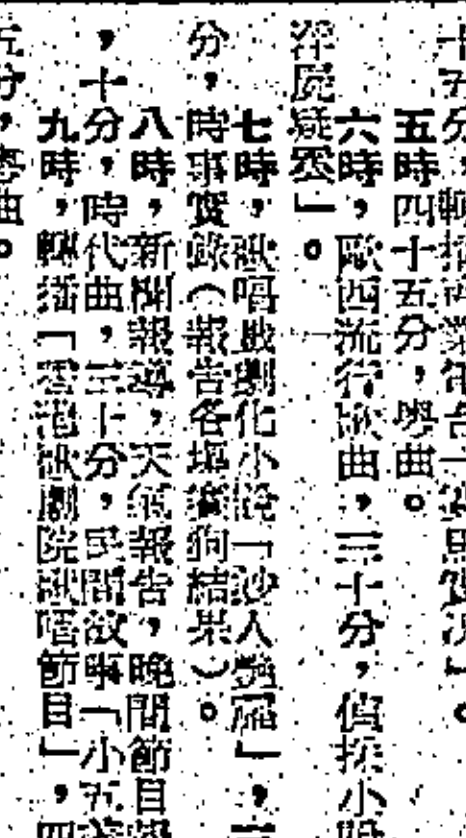 十五分，轉播商業電台「賽馬實況」。
五時四十五分，粵曲。
六時，歐西流行歌曲，三十分，偵探小
浮屍疑雲」。
七時，歌唱戲劇化小說「沙人艷屍」，
分，時事實錄（報告各場賽狗結果）。
八時，新聞報導，天氣報告，晚間節目
，十分，時代曲，三十分，民間故事「小五
九時，轉播「香港歌劇院歌唱節目」，四
五分，粵曲。